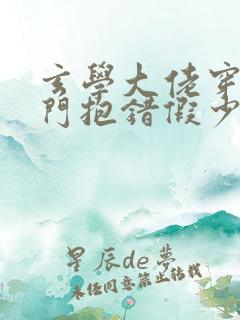 玄學大佬穿
門抱錯假少
星辰de夢
未經同意禁止轉載